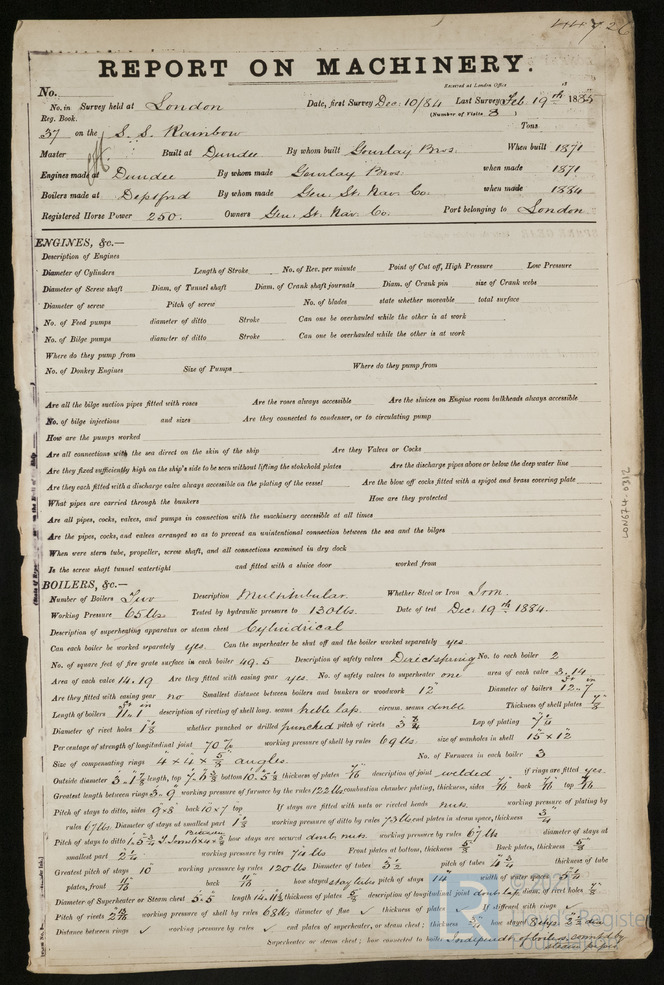 REPORT ON MACHINERY.
No.
Received at London Office
No. in Survey held at London Date, first Survey Dec: 10/84 Last Survey Feb. 19th 1885
Reg. Book. (Number of Visits 8)
37 on the S. S. Rainbow Tons
Master Built at Dundee By whom built Gourlay Bros. When built 1871
Engines made at Dundee By whom made Gourlay Bros. when made 1871
Boilers made at Deptford By whom made Gen. St. Nav. Co. when made 1884
Registered Horse Power 250. Owners Gen. St. Nav. Co. Port belonging to London
ENGINES, &c.—
Description of Engines
Diameter of Cylinders Length of Stroke No. of Rev. per minute Point of Cut off, High Pressure Low Pressure
Diameter of Screw shaft Diam. of Tunnel shaft Diam. of Crank shaft journals Diam. of Crank pin size of Crank webs
Diameter of screw Pitch of screw No. of blades state whether moveable total surface
No. of Feed pumps diameter of ditto Stroke Can one be overhauled while the other is at work
No. of Bilge pumps diameter of ditto Stroke Can one be overhauled while the other is at work
Where do they pump from
No. of Donkey Engines Size of Pumps Where do they pump from
Are all the bilge suction pipes fitted with roses Are the roses always accessible Are the sluices on Engine room bulkheads always accessible
No. of bilge injections and sizes Are they connected to condenser, or to circulating pump
How are the pumps worked
Are all connections with the sea direct on the skin of the ship Are they Valves or Cocks
Are they fixed sufficiently high on the ship's side to be seen without lifting the stokehold plates Are the discharge pipes above or below the deep water line
Are they each fitted with a discharge valve always accessible on the plating of the vessel Are the blow off cocks fitted with a spigot and brass covering plate
What pipes are carried through the bunkers How are they protected
Are all pipes, cocks, valves, and pumps in connection with the machinery accessible at all times
Are the pipes, cocks, and valves arranged so as to prevent an unintentional connection between the sea and the bilges
When were stern tube, propeller, screw shaft, and all connections examined in dry dock
Is the screw shaft tunnel watertight and fitted with a sluice door worked from
BOILERS, &c.—
Number of Boilers Two Description Multitubular Whether Steel or Iron Iron.
Working Pressure 65 lbs. Tested by hydraulic pressure to 130 lbs. Date of test Dec. 19th 1884.
Description of superheating apparatus or steam chest Cylindrical
Can each boiler be worked separately yes. Can the superheater be shut off and the boiler worked separately yes
No. of square feet of fire grate surface in each boiler 49.5 Description of safety valves Direct spring No. to each boiler 2
Area of each valve 14.19 Are they fitted with easing gear yes. No. of safety valves to superheater one area of each valve 3.14
Are they fitted with easing gear no Smallest distance between boilers and bunkers or woodwork 12" Diameter of boilers 12 ft 7 in
Length of boilers 11 ft 1 in description of riveting of shell long. seams treble lap. circum. seams double Thickness of shell plates 7/8
Diameter of rivet holes 1 1/8 whether punched or drilled punched pitch of rivets 3 3/4 Lap of plating 7 1/4
Per centage of strength of longitudinal joint 70% working pressure of shell by rules 69 lbs. size of manholes in shell 15 × 12
Size of compensating rings 4 × 4 × 5/8 angles. No. of Furnaces in each boiler 3
Outside diameter length, top bottom thickness of plates 7/16 description of joint welded if rings are fitted yes.
Greatest length between rings 3-9 working pressure of furnace by the rules 122 lbs combustion chamber plating, thickness, sides 7/16 back 7/16 top 7/16
Pitch of stays to ditto, sides 9 × 8 back 10 × 7 top If stays are fitted with nuts or riveted heads nuts. working pressure of plating by
rules 67 lbs. Diameter of stays at smallest part 1 1/8 working pressure of ditto by rules 73 lbs end plates in steam space, thickness 3/4
Pitch of stays to ditto how stays are secured doub. nuts. working pressure by rules 67 lbs diameter of stays at
smallest part 2 1/4 working pressure by rules 74 lbs Front plates at bottom, thickness 5/8 Back plates, thickness 5/8
Greatest pitch of stays 10" working pressure by rules 120 lbs Diameter of tubes 3 1/2 pitch of tubes 4 3/4 thickness of tube
plates, front 11/16 back 11/16 how stayed stay tubes pitch of stays 14" width of water spaces 5 1/4
Diameter of Superheater or Steam chest 5.5 length thickness of plates description of longitudinal joint doub. lap diam. of rivet holes 7/8
Pitch of rivets working pressure of shell by rules 68 lbs diameter of flue ✓ thickness of plates ✓ If stiffened with rings ✓
Distance between rings ✓ working pressure by rules ✓ end plates of superheater, or steam chest; thickness how stayed
Superheater or steam chest; how connected to boiler Independt of boilers, connd by
steam pipes
LON674-0312
Lloyd's Register
Foundation